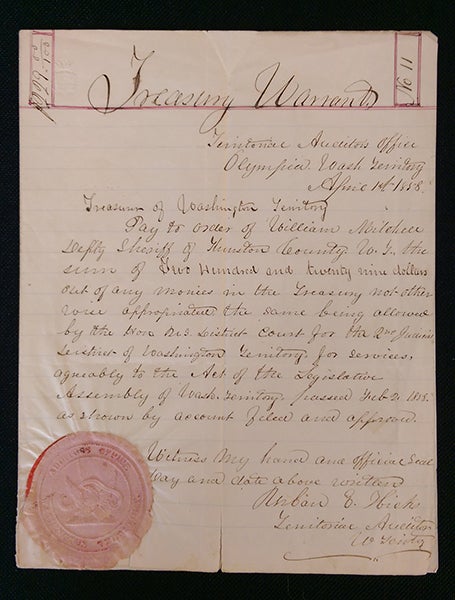 No 11
Treasury Warrant
Territorial Auditors Office
Olympia Wash Territory
April 1st 1858
Treasurer of Washington Territory
Pay to order of William Mitchell
Depty Sheriff of Thurston County W. T. the
sum of Two Hundred and twenty nine dollars
out of any monies in the Treasury not other
wise appropriated the same being allowed
by the Hon District Court for the 2nd Judicial
District of Washington Territory for services,
agreably to the Act of the Legislative
Assembly of Wash. Territory passed Feb 2
as shown by account filed and approved.
Witness My hand and Official Seal
Day and date above written
Urban E. Hicks
Territorial Auditor
W. Territy